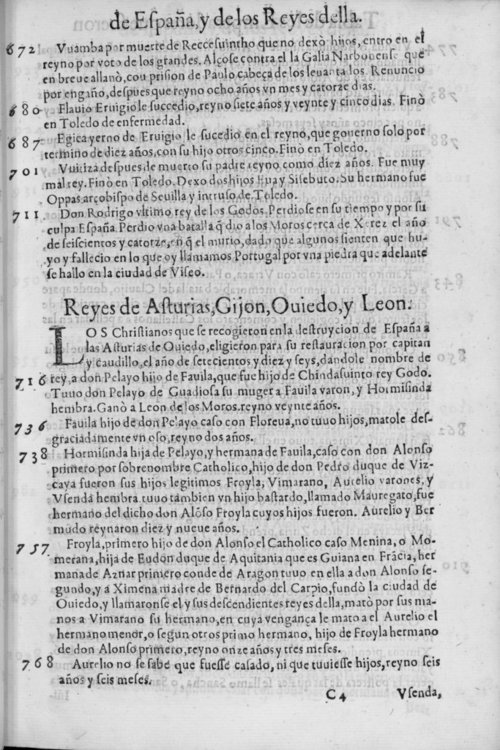 de España, y de los Reyes della.
672 Vuamba por muerte de Reccesuintho que no dexò hijos, entro en el
reyno por voto de los grandes. Alçose contra el la Galia Narbonense que
en breue allanò, cou prision de Paulo cabeça de los leuanta los. Renuncio
por engaño, despues que reyno ocho años vn mes y catorze dias.
680 Flauio Eruigio le succedio, reyno siete años y veynte y cinco dias. Finò
en Toledo de enfermedad.
687 Egica yerno de Eruigio le sucedio en el reyno, que gouerno solo por
termino de diez años, con su hijo otros cinco. Finò en Toledo.
701 Vuitiza despues de muerto su padre reyno como diez años. Fue muy
mal rey. Finò en Toledo. Dexo dos hijos Eua y Sisebuto. Su hermano fue
Oppas arçobispo de Seuilla y intruso de Toledo.
711 Don Rodrigo vltimo rey de los Godos. Perdiose en su tiempo y por su
culpa España Perdio vna batalla q̃ dio a los Moros cerca de Xerez el año
de seiscientos y catorze, en q̃ el murio, dado que algunos sienten que hu-
yo y fallecio en lo que oy llamamos Portugal por vna piedra que adelante
se hallo en la ciudad de Viseo.
Reyes de Asturias, Gijon, Ouiedo, y Leon.
LOS Christianos que se recogieron en la destruycion de España a
las Asturias de Ouiedo, eligieron para su restauracion por capitan
y caudillo, el año de setecientos y diez y seys, dandole nombre de
716 rey, a don Pelayo hijo de Fauila, que fue hijo de Chindasuinto rey Godo.
Tuuo don Pelayo de Gaudiosa su muger a Fauila varon, y Hormisinda
hembra. Ganò a Leon de los Moros. reyno veynte años.
736 Fauila hijo de don Pelayo caso con Floreua, no tuuo hijos, matole des-
graciadamente vn oso, reyno dos años.
738 Hormisinda hija de Pelayo, y hermana de Fauila, caso con don Alonso
primero por sobrenombre Catholico, hijo de don Pedro duque de Viz-
caya fueron sus hijos legitimos Froyla, Vimarano, Aurelio varones, y
Vsenda hembra. tuuo tambien vn hijo bastardo, llamado Mauregato, fue
hermano del dicho don Alõso Froyla cuyos hijos fueron. Aurelio y Ber
mudo reynaron diez y nueue años.
757 Froyla, primero hijo de don Alonso el Catholico caso Menina, o Mo-
merana, hija de Eudon duque de Aquitania que es Guiana en Frãcia, her
mana de Aznar primero conde de Aragon tuuo en ella a don Alonso se-
gundo, y a Ximena madre de Bernardo del Carpio, fundò la ciudad de
Ouiedo, y llamaronse el y sus descendientes reyes della, matò por sus ma-
nos a Vimarano su hermano, en cuya vengança le mato a el Aurelio el
hermano menor, o segun otros primo hermano, hijo de Froyla hermano
de don Alonso primero, reyno onze años y tres meses.
768 Aurelio no se sabe que fuesse casado, ni que tuuiesse hijos, reyno seis
años y seis meses.
C4 Vsenda,